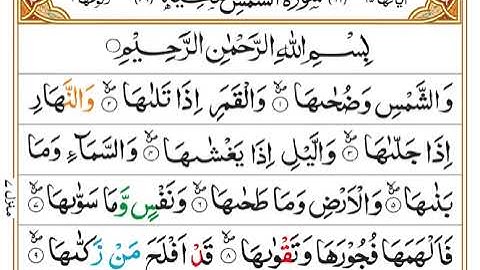 سُوْرَةُ الشَّمْسِ
بِسْمِ اللّٰهِ الرَّحْمٰنِ الرَّحِيْمِ
وَالشَّمْسِ وَضُحٰىهَا ۝١ وَالْقَمَرِ اِذَا تَلٰىهَا ۝٢ وَالنَّهَارِ
اِذَا جَلّٰىهَا ۝٣ وَالَّيْلِ اِذَا يَغْشٰىهَا ۝٤ وَالسَّمَآءِ وَمَا
بَنٰىهَا ۝٥ وَالْاَرْضِ وَمَا طَحٰىهَا ۝٦ وَنَفْسٍ وَّمَا سَوّٰىهَا ۝٧
فَاَلْهَمَهَا فُجُوْرَهَا وَتَقْوٰىهَا ۝٨ قَدْ اَفْلَحَ مَنْ زَكّٰىهَا ۝٩